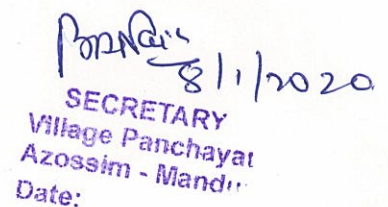 8/1/2020
SECRETARY
Village Panchayat
Azossim - Mandur
Date: